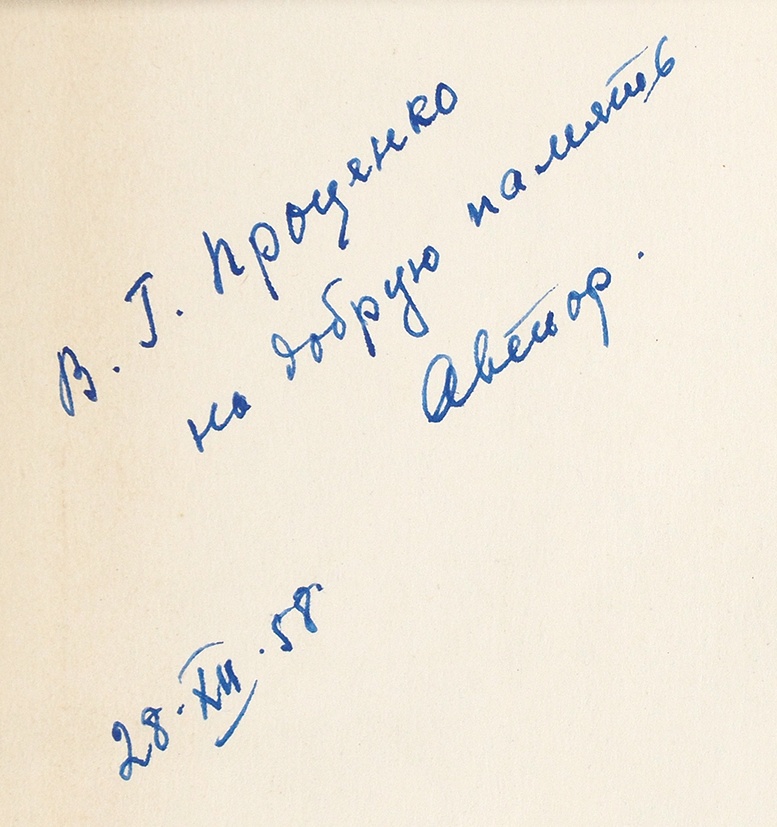 В. Г. Проценко
на добрую память
Автор.
28.XII.58